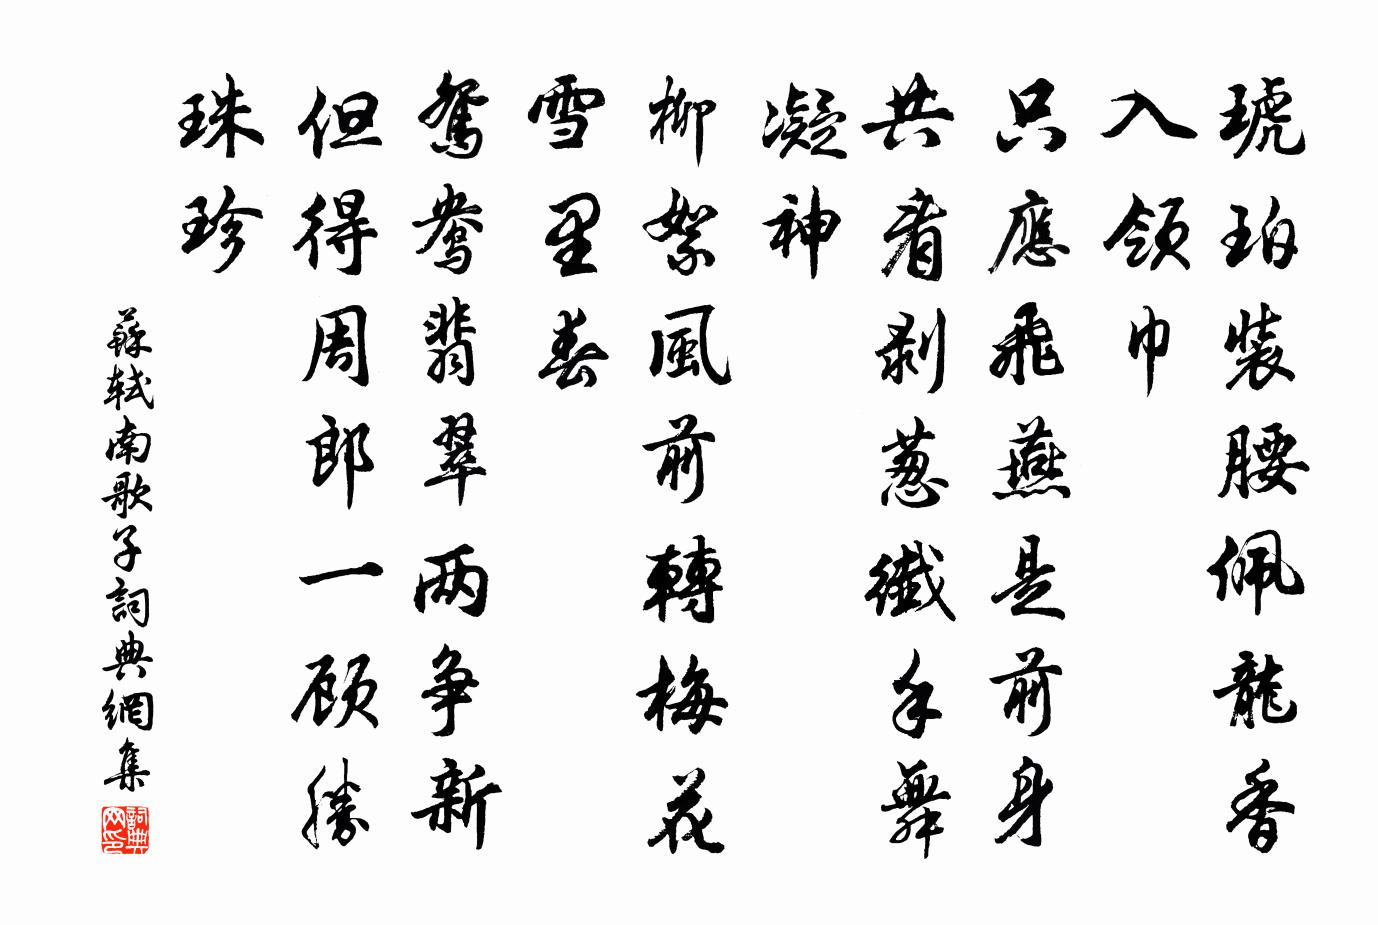 琥珀裝腰佩龍香
入領巾
只應飛燕是前身
共看剥葱纖手舞
凝神
柳絮風前轉梅花
雪里春
鴛鴦翡翠两争新
但得周郎一顾勝
珠珍
蘇軾南歌子詞典網集
詞典网印